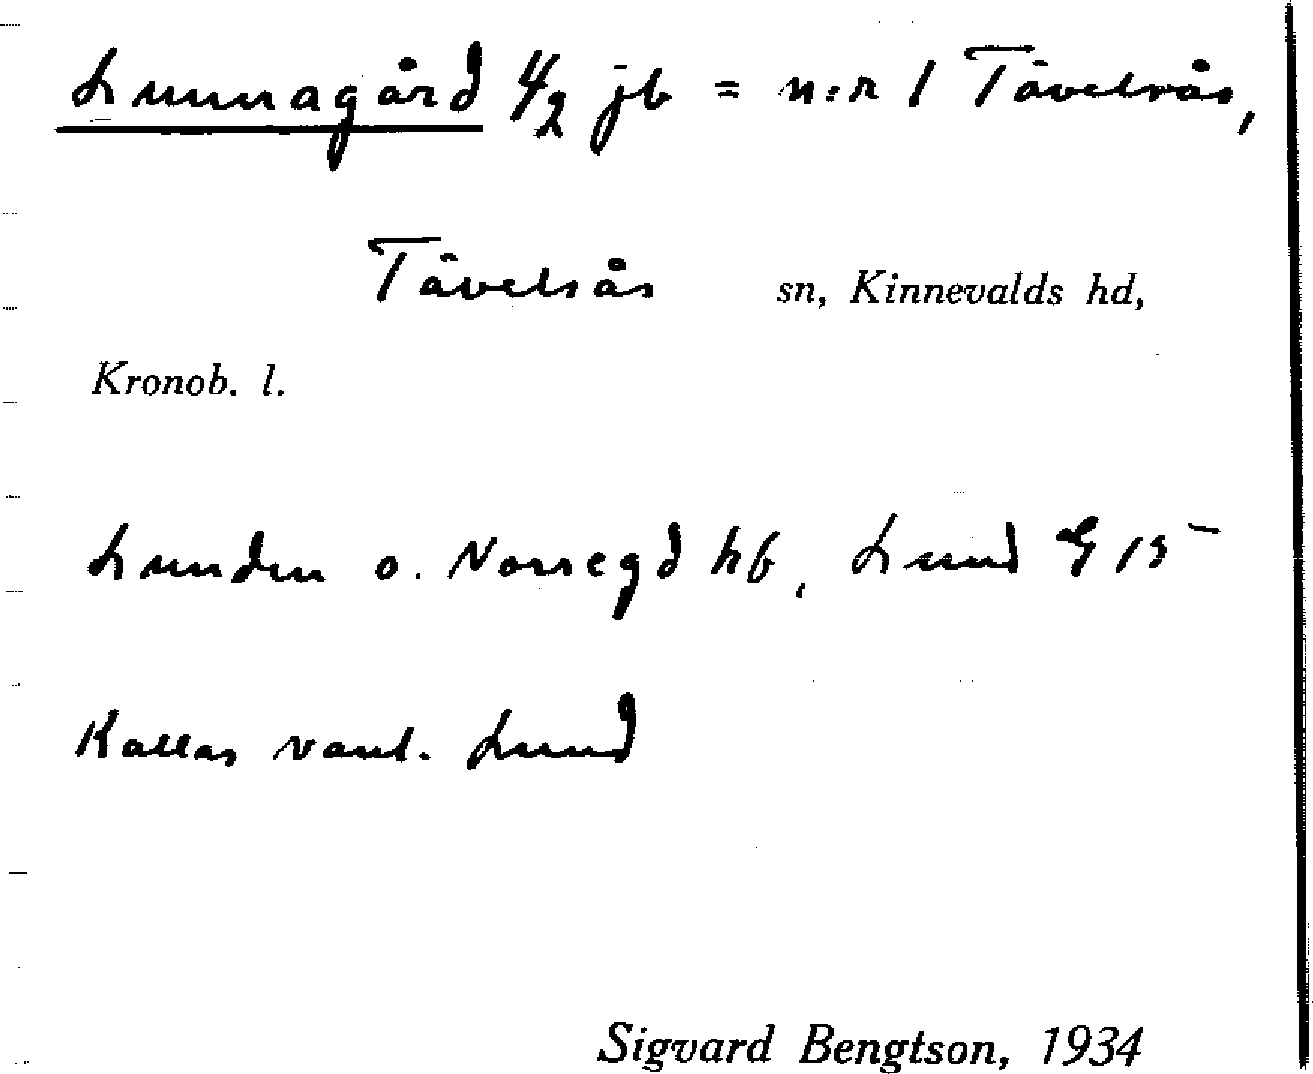 Lunnagård 1/2 jb = n:r 1 Tävelsås,
Tävelsås sn, Kinnevalds hd,
Kronob. l.
Lunden o. Norregd hb, Lund G 15
Kallas vanl. Lund
Sigvard Bengtson, 1934